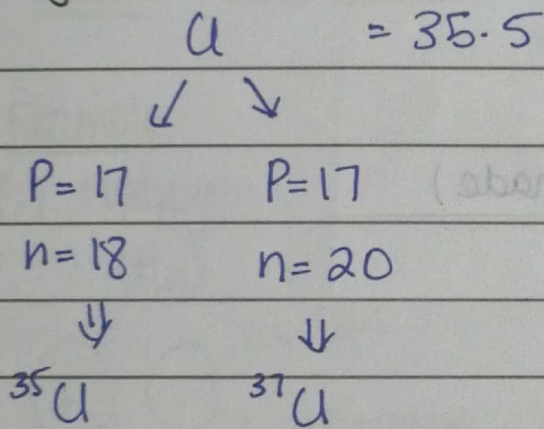 Cl = 35.5
↙ ↘
P= 17 P= 17
n= 18 n= 20
⇓ ⇓
³⁵Cl ³⁷Cl